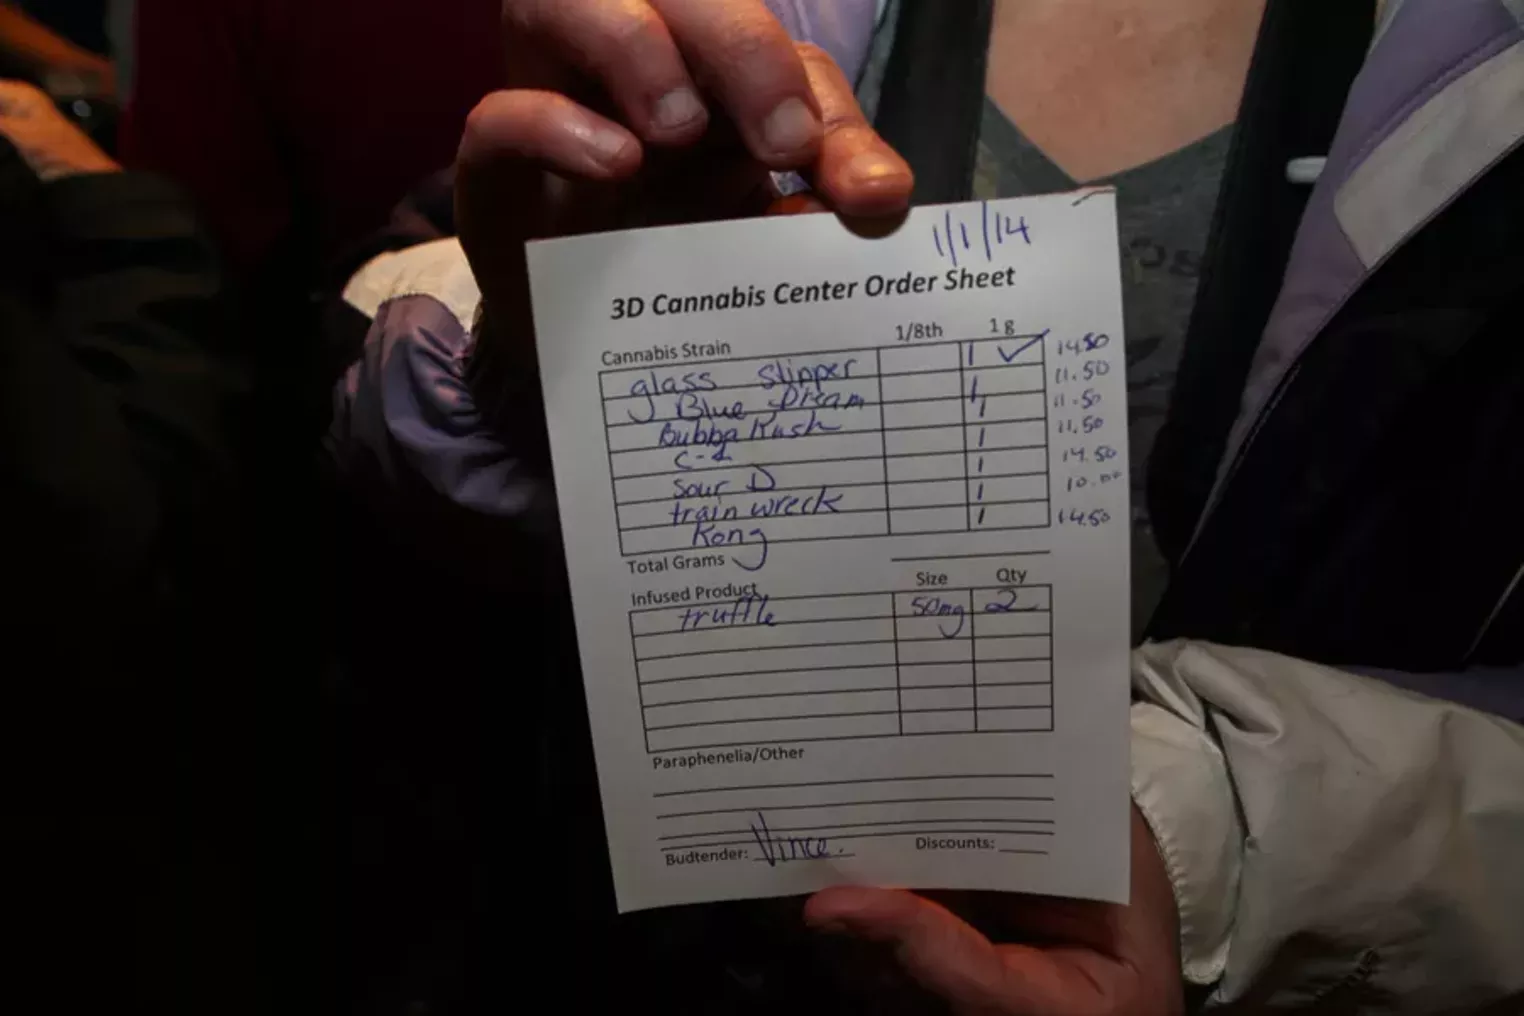 1/1/14
3D Cannabis Center Order Sheet
Cannabis Strain 1/8th 1 g
glass slipper 1 ✓ 14.50
Blue Dream 1 11.50
Bubba Kush 1 11.50
C-1 1 11.50
Sour D 1 14.50
train wreck 1 10.00
Kong 1 14.50
Total Grams
Infused Product Size Qty
truffle 50mg 2
Paraphenelia/Other
Budtender: Vince. Discounts: